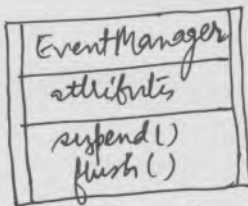 EventManager
attributes
suspend()
flush()